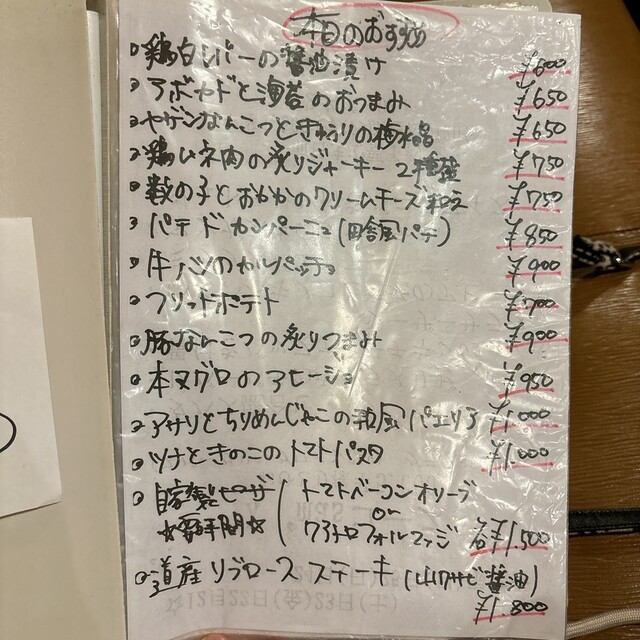 本日のおすすめ
鶏白レバーの醤油漬け ¥600
アボカドと海苔のおつまみ ¥650
ヤゲンなんこつときゅうりの梅水晶 ¥650
鶏ムネ肉の炙りジャーキー2種盛 ¥750
数の子とおかかのクリームチーズ和え ¥750
パテドカンパーニュ(田舎風パテ) ¥850
牛ハツのカルパッチョ ¥900
フリットポテト ¥700
豚なんこつの炙りつまみ ¥900
本マグロのアヒージョ ¥950
アサリとちりめんじゃこの和風パエリア ¥1000
ツナときのこのトマトパスタ ¥1,000
自家製ピザ トマトベーコンオリーブ
☆要時間☆ or
クアトロフォルマッジ 各¥1,500
道産リブロースステーキ(山ワサビ醤油)
¥1,800
12月22日(金)23日(土)